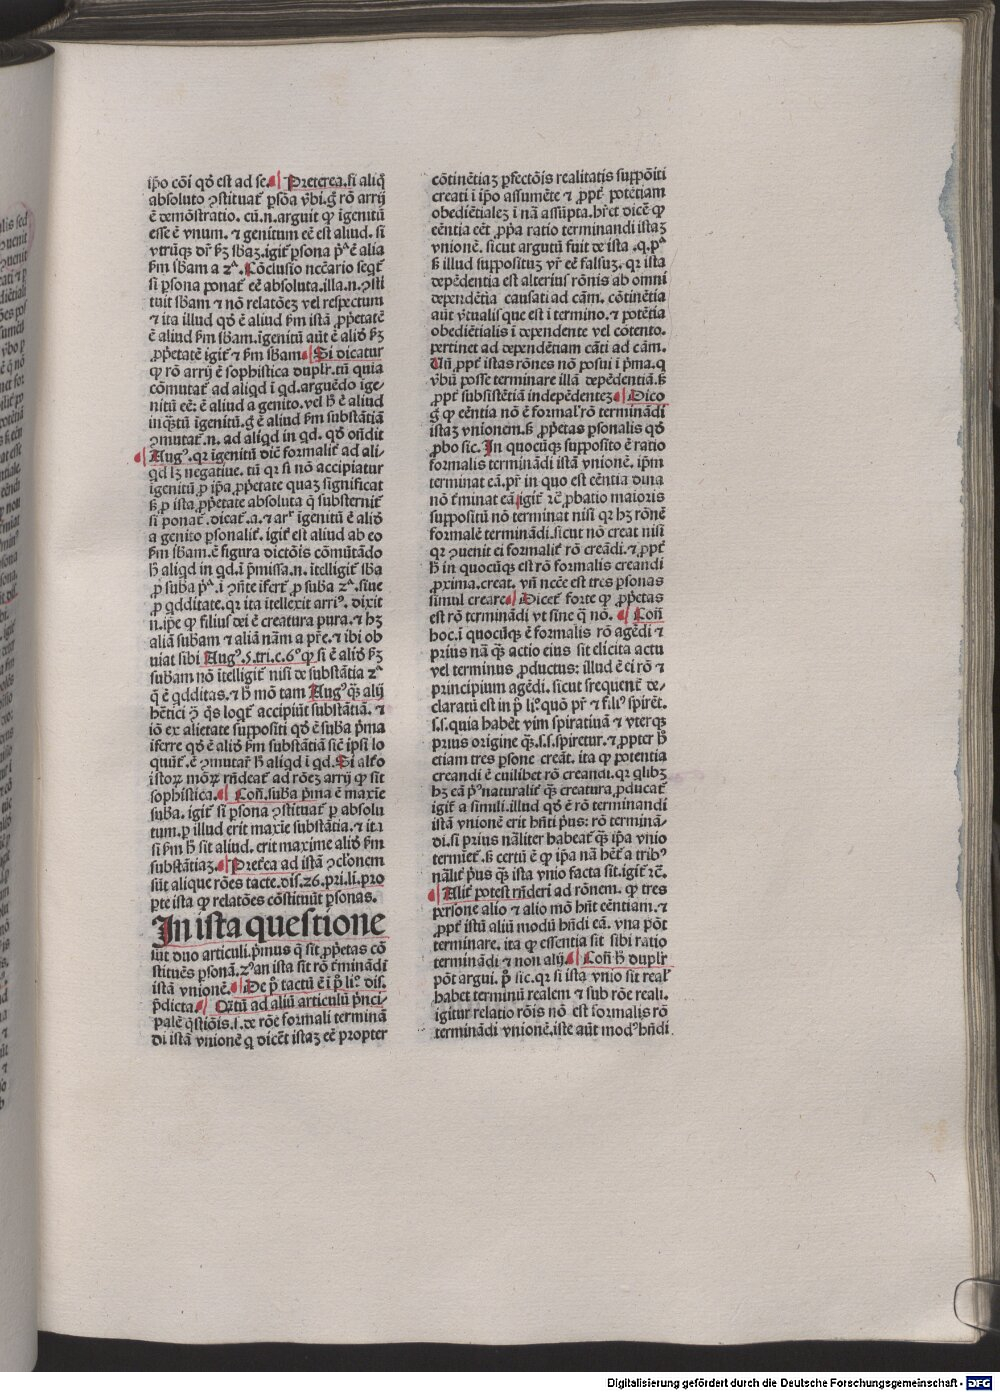 ip̄o cōi qd̄ est ad se. Preterea. si aliq̄
absoluto ꝯstituat᷑ ꝑsōa v̄bi. g̊ rō arrij
ē demōstratio. cū .n. arguit ꝙ īgenitū
esse ē vnum. ⁊ genitum eē est aliud. si
vtrūqꝫ dr̄ ẜm ſbaꝫ. igit᷑ ꝑsona pͣ ē alia
ẜm sbam a 2ͣ. Cōclusio nccārio seqt᷑
si ꝑsona ponat᷑ eē absoluta. illa .n. ꝯsti
tuit sbam ⁊ nō relatōeꝫ vel respectum
⁊ ita illud qd̄ ē aliud ẜm istā ꝓp̄etatē
ē aliud ẜm sbam. īgenitū aūt ē aliud ẜꝫ
ꝓp̄etatē igit᷑ ⁊ ẜm sbam. Si dicatur
ꝙ rō arrij ē sophistica duplr̄. tū quia
cōmutat᷑ ad aliqd in qd. arguēdo īge-
nitū eē: ē aliud a genito. vel h̄ ē aliud
inq̄tū īgenitū. g̊ ē aliud ẜm substātiā
ꝯmutat᷑ .n. ad aliqd in qd. qd̄ oñdit
Augꝰ. qꝛ igenitū dīc̄ formalit᷑ ad ali-
qd lꝫ negatiue. tū qꝛ si nō accipiatur
īgenitū ꝓ ip̄a ꝓp̄etate quaꝫ significat
ẜ ꝓ ista ꝓp̄etate absoluta q̄ substernit᷑
si ponat᷑. dicat᷑ .a. ⁊ arr̄ īgenitū ē aliud
a genito ꝑsonalit᷑. igit᷑ est aliud ab eo
ẜm sbam. ē figura dictōis cōmutādo
h̄ aliqd in qd. ī p̄missa .n. ītelligit᷑ sba
ꝓ suba pͣ. ī ꝯñte ifert᷑ ꝓ suba 2ͣ. siue
ꝓ qdditate. qꝛ ita itellexit arriꝰ. dixit
.n. ip̄e ꝙ filius dei ē creatura pura. ⁊ hꝫ
aliā subam ⁊ aliā nām a pr̄e. ⁊ ibi ob
uiat sibi Augꝰ. 5. tri. c. 6ͦ ꝙ si ē aliud ẜꝫ
subam nō ītelligit᷑ nisi de substātia 2ͣ
q̄ ē qdditas. ⁊ h̄ mō tam Augꝰ q̄ꝫ alij
hētici ꝑ q̄s loqt᷑ accipiūt substātiā. ⁊
iō ex alietate suppositi qd̄ ē suba p̄ma
iferre qd̄ ē aliud ẜm substātiā sic̄ ipsi lo
quūt᷑. ē ꝯmutar̄ h̄ aliqd ī qd. Si alio
istoꝝ mōꝝ rñdeat᷑ ad rōeꝫ arrij ꝙ sit
sophistica. Coñ. suba p̄ma ē maxīe
suba. igit᷑ si ꝑsona ꝯstituat᷑ ꝑ absolu
tum. ꝑ illud erit maxīe substātia. ⁊ ita
si ẜm h̄ sit aliud. erit maxime aliud ẜm
substātiaꝫ. Pretēa ad istā ꝯclonem
sūt alique rōes tacte. dis. 26. pri. li. pro
pte ista ꝙ relatōes cōstituūt ꝑsonas.
In ista questione
sūt duo articuli. p̄mus q̄ sit ꝓp̄etas cō
stituēs ꝑsonā. 2ꝰ an ista sit rō t᷑minādi
istā vnionē. De pͦ tactū ē ī pͦ liͦ. dis.
p̄dicta. Qrtū ad aliū articulū p̄nci-
palē q̄stiōis. s. de rōe formali terminā
di istā vnionē q̄ dicēt istaꝫ eē propter
cōtinētiaꝫ ꝑfectōis realitatis suppoīti
creati ī ip̄o assumēte ⁊ ꝓpt᷑ potētiam
obediētialeꝫ ī nā assūpta. hr̄et dicē ꝙ
eēntia eēt ꝓp̄a ratio terminandi istaꝫ
vnionē. sicut argutū fuit de ista .q. pͣ
ẜ illud supposituꝫ vr̄ eē falsuꝫ. qꝛ ista
depēdentia est alterius rōnis ab omni
dependētia causati ad cām. cōtinētia
aūt v̄tualis que est ī termino. ⁊ potētia
obediētialis ī dependente vel cōtento.
pertinet ad dependētiam cāti ad cām.
Un̄ ꝓpt᷑ istas rōnes nō posui ī p̄ma .q.
v̄bū posse terminare illā depēdētiā. ẜ
ꝓpt᷑ subsistētiā independēteꝫ. Dico
g̊ ꝙ eēntia nō ē formal̄ rō terminādi
istaꝫ vnionem. ẜ ꝓp̄etas ꝑsonalis qd̄
ꝓbo sic. In quocūqꝫ supposito ē ratio
formalis terminādi istā vnionē. ip̄m
terminat eā. pr̄ in quo est eēntia diuina
nō t᷑minat eā igit᷑ rc̄. ꝓbatio maioris
suppositū nō terminat nisi qꝛ hꝫ rōnē
formalē terminādi. sicut nō creat nisi
qꝛ ꝯuenit ei formalit᷑ rō creādi. ⁊ ꝓpt᷑
h̄ in quocūqꝫ est rō formalis creandi
ꝓxima. creat. vn̄ nccē est tres ꝑsonas
simul creare. Dicet᷑ forte ꝙ ꝓp̄etas
est rō terminādi vt sine q̄ nō. Coñ
hoc. ī quocūqꝫ ē formalis rō agēdi ⁊
prius nā q̄ꝫ actio eius sit elicita actu
vel terminus ꝓductus: illud ē ei rō ⁊
principium agēdi. sicut frequent᷑ de-
claratū est in pͦ liͦ. quō pr̄ ⁊ filiꝰ spirēt.
s. s. quia habēt vim spiratiuā ⁊ vterqꝫ
prius origine q̄ꝫ. s. s. spiretur. ⁊ ꝓpter h̄
etiam tres ꝑsone creāt. ita ꝙ potentia
creandi ē cuilibet rō creandi. qꝛ qlibꝫ
hꝫ eā pͥꝰ naturalit᷑ q̄ꝫ creatura ꝓducat᷑
igit᷑ a simili. illud qd̄ ē rō terminandi
istā vnionē erit hñti pͥus: rō terminā-
di. si prius nāliter habeat᷑ q̄ꝫ ip̄a vnio
termīet᷑. ẜ certū ē ꝙ ip̄a nā hēt᷑ a tribꝰ
nālit᷑ pͥus q̄ꝫ ista vnio facta sit. igit᷑ rc̄.
Alit᷑ potest rñderi ad rōnem. ꝙ tres
persone alio ⁊ alio mō hñt eēntiam. ⁊
ꝓpt᷑ istū aliū modū hñdi eā. vna pōt
terminare. ita ꝙ essentia sit sibi ratio
terminādi ⁊ non alij. Coñ h̄ duplr̄
pōt argui. pͦ sic. qꝛ si ista vnio sit real̄
habet terminū realem ⁊ sub rōe reali.
igitur relatio rōis nō est formalis rō
terminādi vnionē. iste aūt modꝰ hñdi
Digitalisierung gefördert durch die Deutsche Forschungsgemeinschaft - DFG